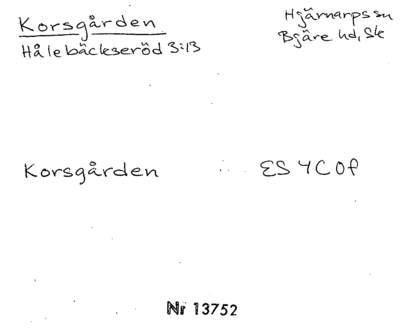 Korsgården
Hålebäckseröd 3:13
Hjärnarps sn
Bjäre hd, Sk
Korsgården ES 4C 0f
Nr 13752